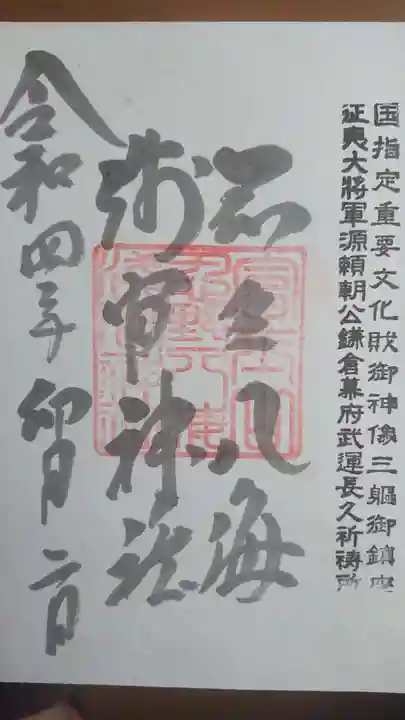 国指定重要文化財御神像三軀御鎮座
征夷大將軍源頼朝公鎌倉幕府武運長久祈祷所
八海
浅間神社
令和四年卯月二日